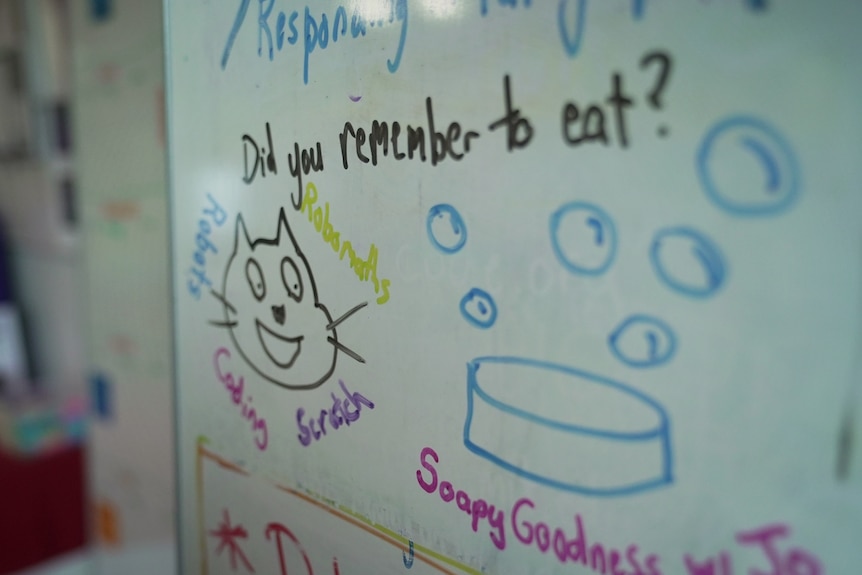 Responding
Did you remember to eat?
Robots
Robomaths
Coding
Scratch
Soapy Goodness w/ Jo